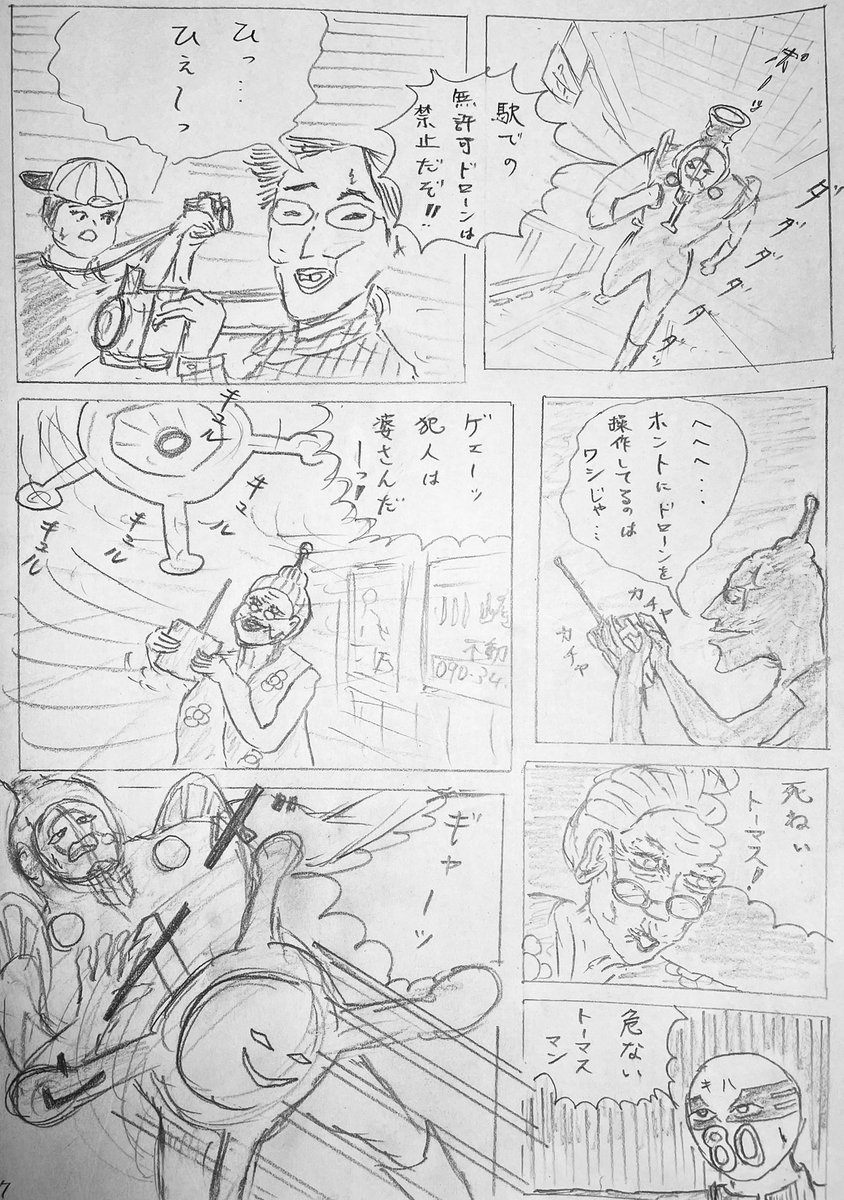 ポーッ
ダッ
ダ
ダ
ダ
ダ
ダ
ダ
駅での
無許可ドローンは
禁止だぞ!!
ひっ…
ひぇーっ
へへへ…
ホントにドローンを
操作してるのは
ワシじゃ…
カチャ
カチャ
ゲェーッ
犯人は
婆さんだ
ーっ!
キュル
キュル
キュル
キュル
川崎
不動
090-34
死ねい
トーマス!
危ない
トーマス
マン
キハ
80
ギャーッ
7